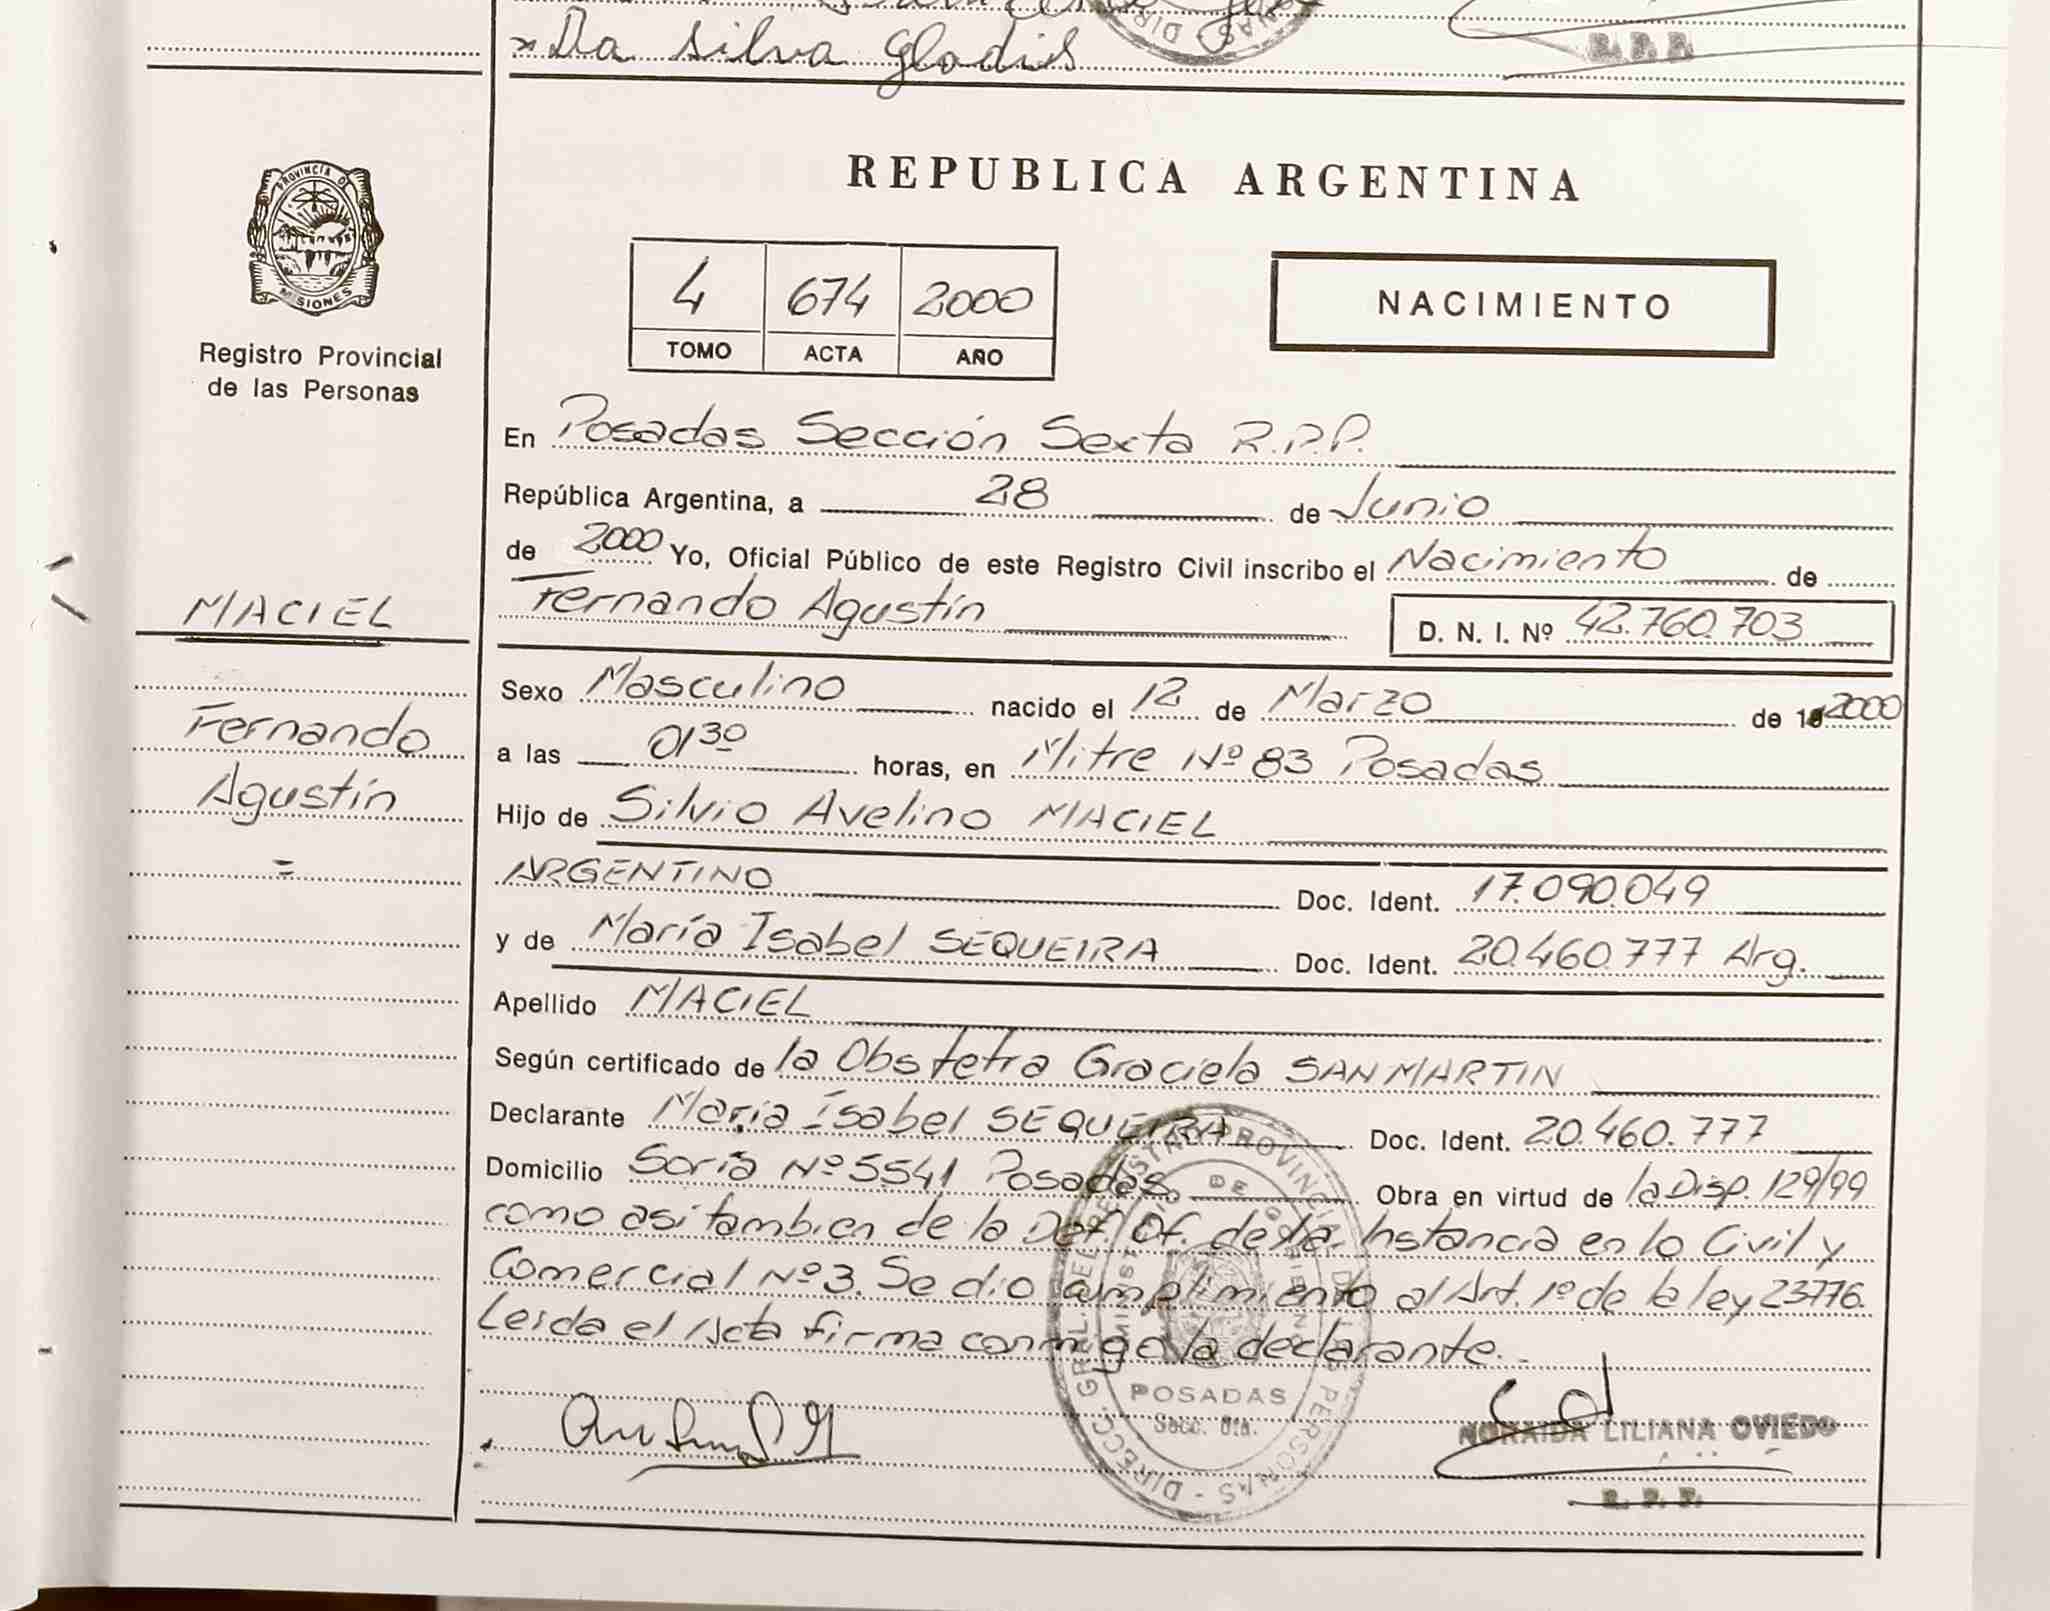 Da Silva Gladis
R. P. P.
PROVINCIA DE
MISIONES
Registro Provincial
de las Personas
REPUBLICA ARGENTINA
4 674 2000
TOMO ACTA AÑO
NACIMIENTO
En Posadas Sección Sexta R.P.P.
República Argentina, a 28 de Junio
de 2000 Yo, Oficial Público de este Registro Civil inscribo el Nacimiento de
MACIEL
Fernando Agustín D. N. I. Nº 42.760.703
Sexo Masculino nacido el 12 de Marzo de 2000
Fernando
a las 01 30 horas, en Mitre Nº 83 Posadas
Agustín
Hijo de Silvio Avelino MACIEL
=
ARGENTINO Doc. Ident. 17.090.049
y de María Isabel SEQUEIRA Doc. Ident. 20.460.777 Arg.
Apellido MACIEL
Según certificado de la Obstetra Graciela SAN MARTIN
Declarante María Isabel SEQUEIRA Doc. Ident. 20.460.777
Domicilio Soria Nº 5541 Posadas. Obra en virtud de la Disp. 129/99
como asi tambien de la Def. Of. de 1a. Instancia en lo Civil y
Comercial Nº 3. Se dio cumplimiento al Art. 1º de la ley 23776.
Leida el Acta firma conmigo la declarante.
POSADAS
Secc. 6ta.
NORAIDA LILIANA OVIEDO
R. P. P.